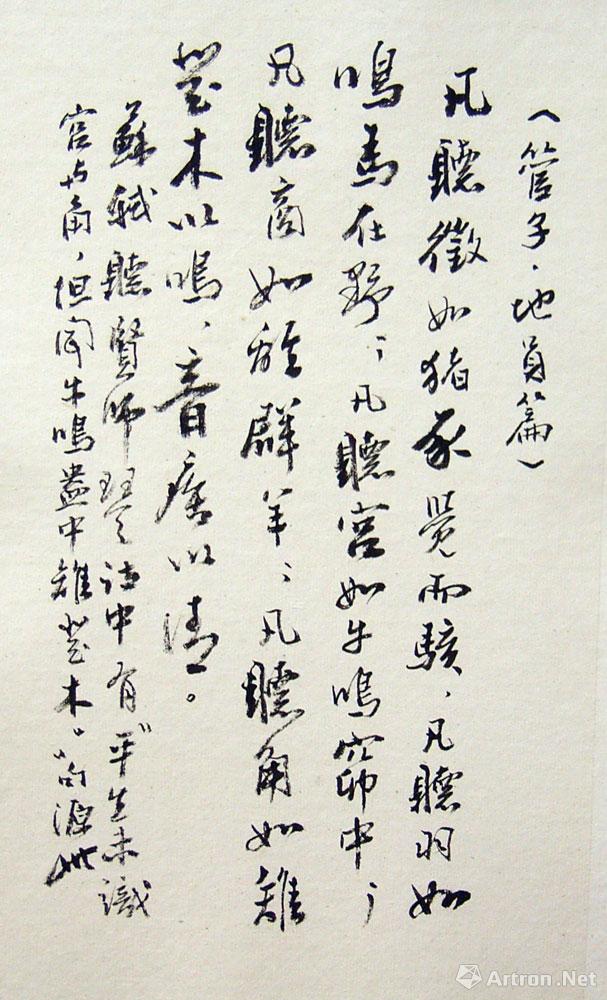 （管子·地員篇）
凡聽徵如猪豕覺而駭，凡聽羽如
鳴馬在野；凡聽宮如牛鳴窌中；
凡聽商如離群羊；凡聽角如雉
登木以鳴，音疾以清。
蘇軾聽賢師琴詩中有“平生未識
宮与角，但聞牛鳴盎中雉登木”句源此
Artron.Net